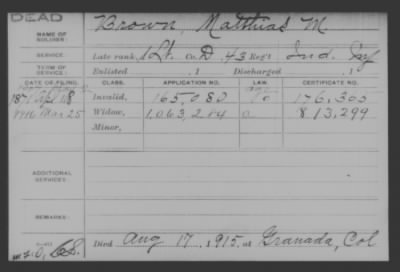 DEAD
NAME OF SOLDIER: Brown, Matthias M.
SERVICE: Late rank, 1 Lt. Co. D, 43 Reg't Ind. Inf
TERM OF SERVICE: Enlisted , 1 Discharged , 1
DATE OF FILING. CLASS. APPLICATION NO. LAW. CERTIFICATE NO.
Invalid, 165,082 176,303
1916 Mar 25 Widow, 1,063,284 813,299
Minor,
ADDITIONAL SERVICES:
REMARKS:
Died Aug 17, 1915, at Granada, Col